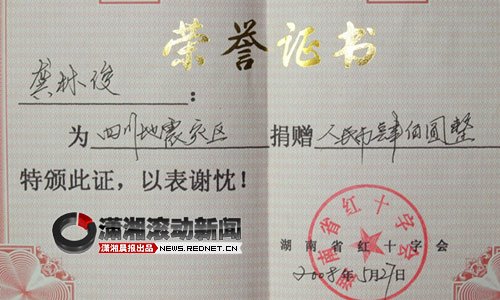 荣誉证书
龚林俊：
为四川地震灾区捐赠人民币肆佰圆整
特颁此证，以表谢忱！
潇湘滚动新闻
潇湘晨报出品 NEWS.REDNET.CN
湖南省红十字会
湖南省红十字会
2008年5月27日